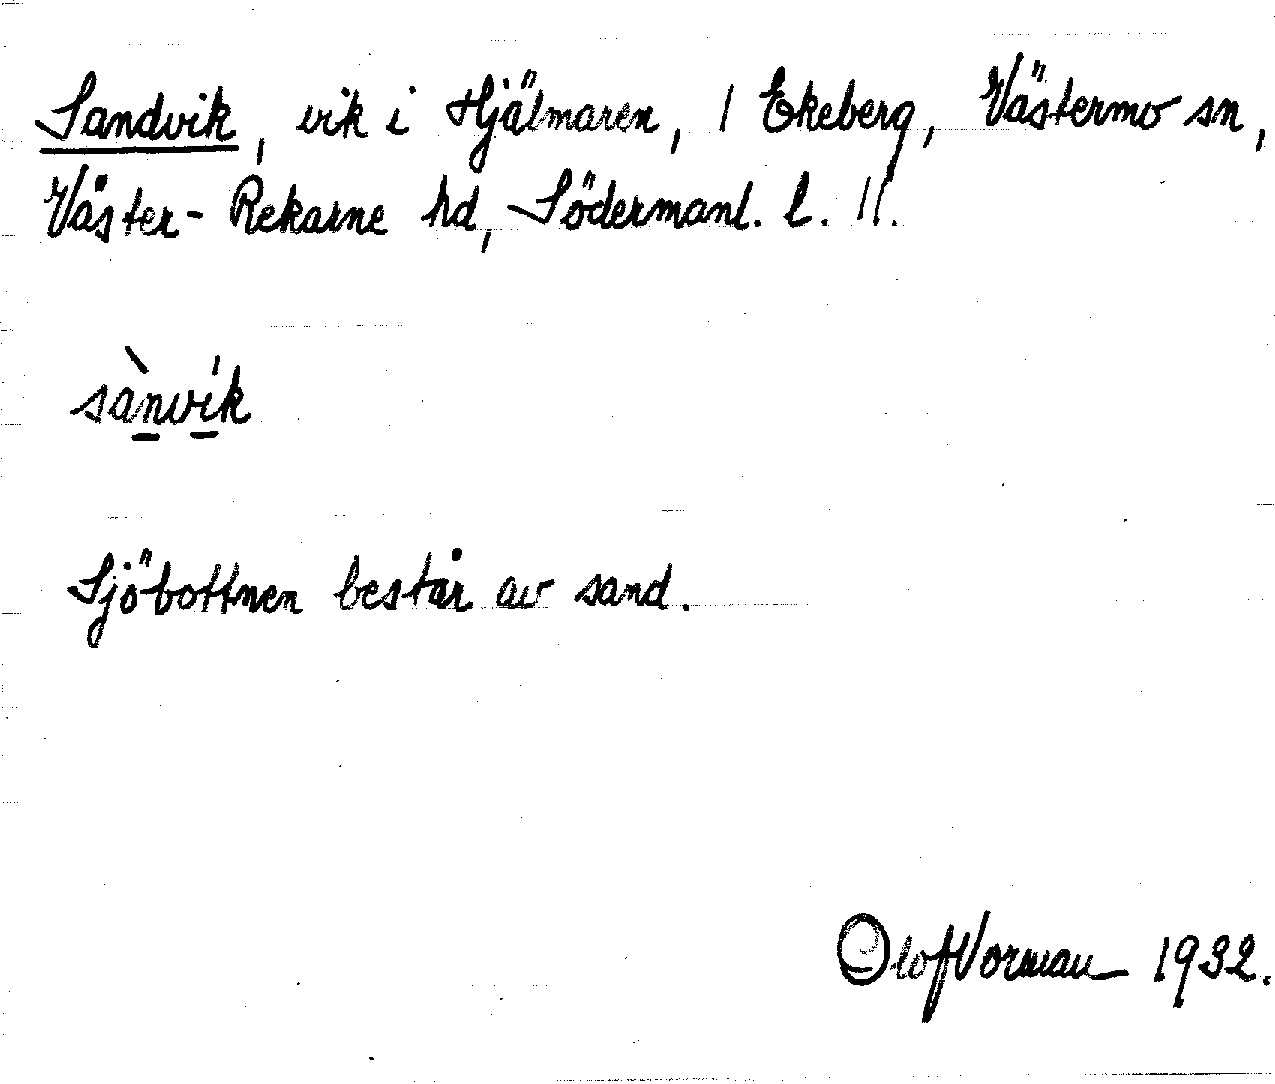 Sandvik, vik i Hjälmaren, / Ekeberg, Västermo sn,
Väster-Rekarne hd, Södermanl. l. //.
sànvík
Sjöbottnen består av sand.
Olof Vorman 1932.